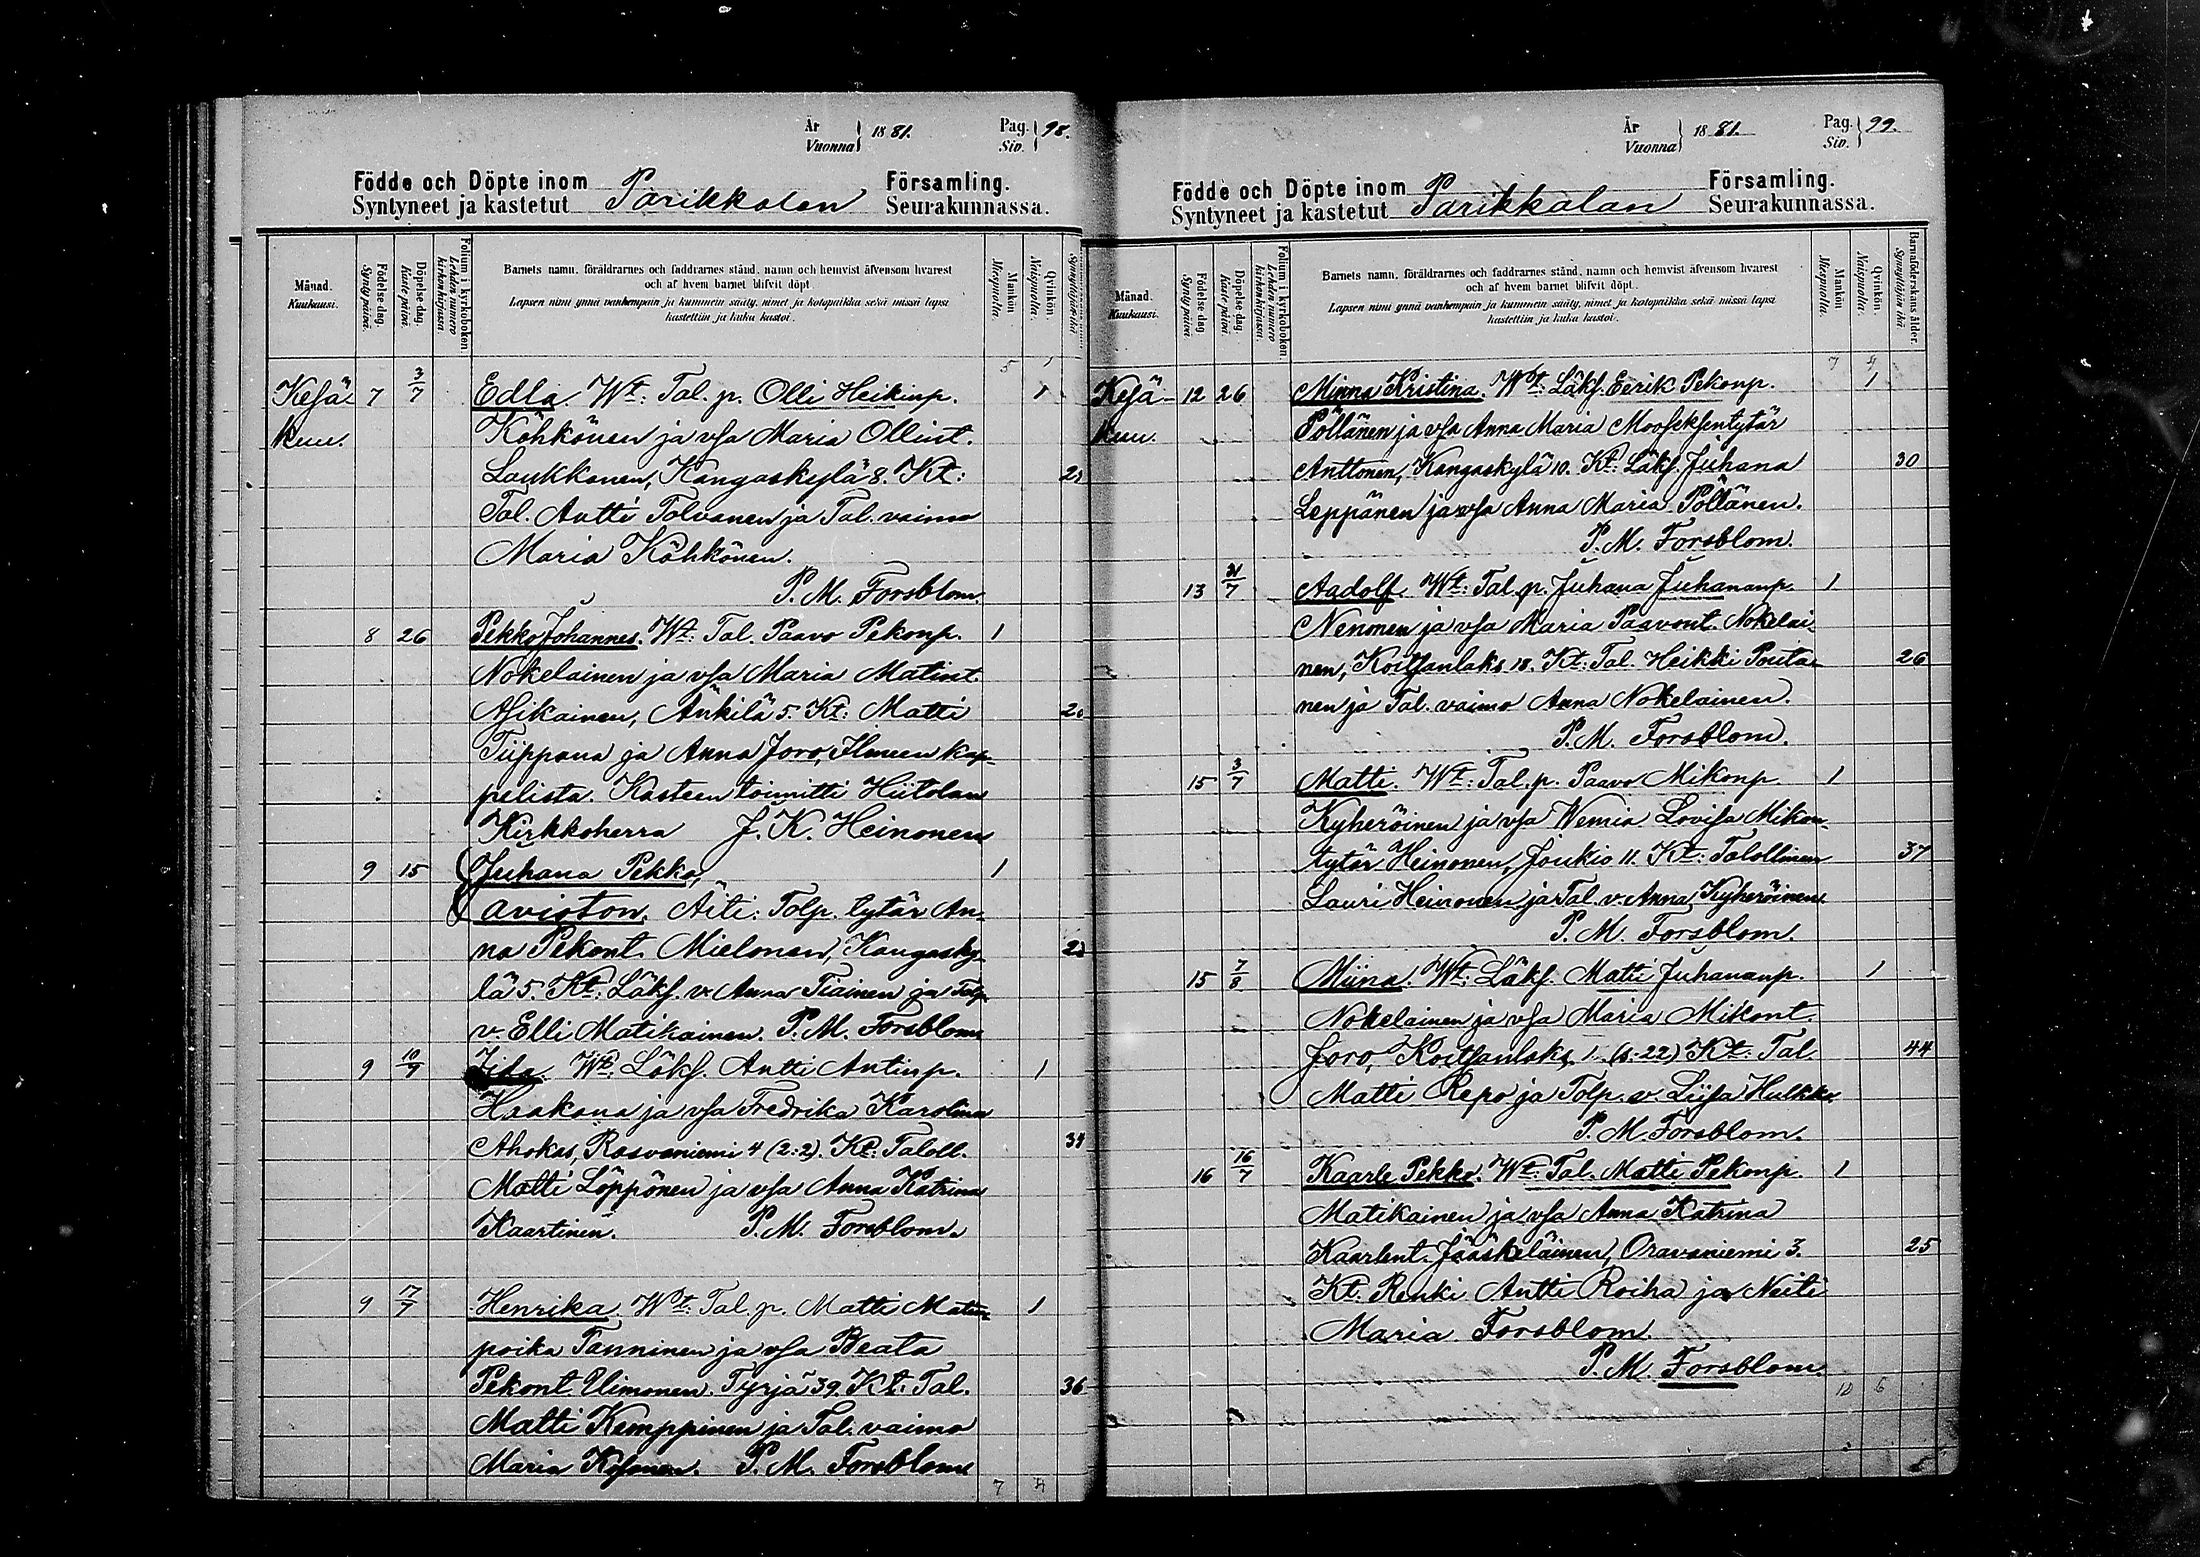 År
Vuonna } 1881. Pag.
Siv. } 98.
Födde och Döpte inom Parikkalan Församling.
Syntyneet ja kastetut Seurakunnassa.
Månad.
Kuukausi.
Födelse-dag.
Syntypäivä.
Döpelse-dag.
Kastepäivä.
Folium i kyrkoboken.
Lehden numero
kirkonkirjassa
Barnets namn, föräldrarnes och faddrarnes stånd, namn och hemvist äfvensom hvarest
och af hvem barnet blifvit döpt.
Lapsen nimi ynnä vanhempain ja kummein sääty, nimet ja kotopaikka sekä missä lapsi
kastettiin ja kuka kastoi.
Mankön
Miespuolta.
Qvinkön.
Naispuolta.
Synnyttäjän ikä
5 1
Kesä- 7 3/7 Edla. Wt: Tal. p. Olli Heikinp. 1
kuu. Köhkönen ja vsa Maria Ollint.
Laukkanen, Kangaskylä 8. Kt:
Tal. Antti Tolvanen ja Tal. vaimo
Maria Köhkönen.
P. M. Forsblom.
8 26 Pekko Johannes. Wt: Tal. Paavo Pekonp. 1
Nokelainen ja vsa Maria Matint.
Asikainen, Änkilä 5. Kt: Matti
Tiippana ja Anna Joro, Ilmeen kap-
pelista. Kasteen toimitti Hiitolan
Kirkkoherra J. K. Heinonen
9 15 Juhana Pekko, 1
avioton. Äiti: Tolp. tytär An-
na Pekont. Mielonen, Kangasky-
lä 5. Kt: Läks. v. Anna Tiainen ja Tolp.
v. Elli Matikainen. P. M. Forsblom
9 10/7 Wt: Läks. Antti Antinp. 1
Haakana ja vsa Fredrika Karolina
Ahokas, Rasvaniemi 4 (2:2). Kt: Taloll. 34
Matti Löppönen ja vsa Anna Katrina
Kaartinen. P. M. Forsblom.
9 17/7 Henrika. Wt: Tal. p. Matti Matin- 1
poika Tanninen ja vsa Beata
Pekont. Uimonen. Tyrjä 39. Kt: Tal. 36
Matti Kemppinen ja Tal. vaimo
Maria Kosonen. P. M. Forsblom
7 4
År
Vuonna } 1881. Pag.
Siv. } 99.
Födde och Döpte inom Parikkalan Församling.
Syntyneet ja kastetut Seurakunnassa.
Månad.
Kuukausi.
Födelse-dag
Syntypäivä.
Döpelse-dag
Kastepäivä.
Folium i kyrkoboken.
Lehden numero
kirkonkirjassa.
Barnets namn, föräldrarnes och faddrarnes stånd, namn och hemvist äfvensom hvarest
och af hvem barnet blifvit döpt.
Lapsen nimi ynnä vanhempain ja kummein sääty, nimet ja kotopaikka sekä missä lapsi
kastettiin ja kuka kastoi.
Mankön
Miespuolta.
Qvinkön.
Naispuolta.
Barnaföderskans ålder.
Synnyttäjän ikä
7 4
Kesä- 12 26 Minna Kristina. Wt: Läks. Eerik Pekonp. 1
kuu. Pöllänen ja vsa Anna Maria Mooseksentytär
Anttonen, Kangaskylä 10. Kt: Läks. Juhana 30
Leppänen ja vsa Anna Maria Pöllänen.
P. M. Forsblom.
13 31/7 Aadolf. Wt: Tal. p. Juhana Juhananp. 1
Nenonen ja vsa Maria Paavont. Nokelai-
nen, Koitsanlaks 18. Kt: Tal. Heikki Pouta- 26
nen ja Tal. vaimo Anna Nokelainen.
P. M. Forsblom.
15 3/7 Matti. Wt: Tal. p. Paavo Mikonp. 1
Kyheröinen ja vsa Wemia Lovisa Mikon-
tytär Heinonen, Joukio 11. Kt: Talollinen 37
Lauri Heinonen ja Tal. v. Anna Kyheröinen
P. M. Forsblom.
15 7/8 Miina. Wt: Läks. Matti Juhananp. 1
Nokelainen ja vsa Maria Mikont.
Joro, Koitsanlaks 1. (s:22) Kt: Tal. 44
Matti Repo ja Tolp. v. Liisa Hulkko.
P. M. Forsblom.
16 16/7 Kaarle Pekko. Wt: Tal. Matti Pekonp. 1
Matikainen ja vsa Anna Katrina
Kaarlent. Jääskeläinen, Oravaniemi 3. 25
Kt. Renki Antti Roiha ja Neiti
Maria Forsblom.
P. M. Forsblom.
10 6